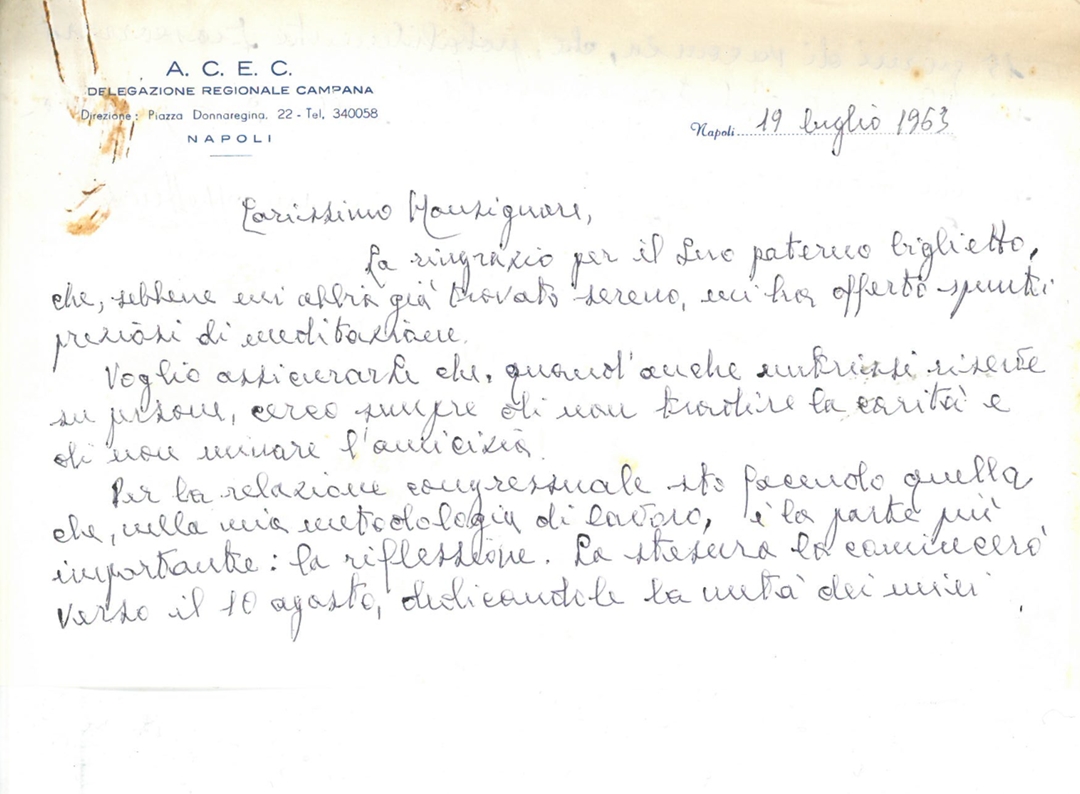 A. C. E. C.
DELEGAZIONE REGIONALE CAMPANA
Direzione: Piazza Donnaregina, 22 - Tel. 340058
NAPOLI
Napoli 19 luglio 1963
Carissimo Monsignore,
La ringrazio per il Suo paterno biglietto,
che, sebbene mi abbia già trovato sereno, mi ha offerto spunti
preziosi di meditazione.
Voglio assicurarLe che, quand'anche nutrissi riserve
su persone, cerco sempre di non tradire la carità e
di non minare l'amicizia.
Per la relazione congressuale sto facendo quella
che, nella mia metodologia di lavoro, è la parte più
importante: la riflessione. La stesura la comincerò
verso il 10 agosto, dedicandole la metà dei miei